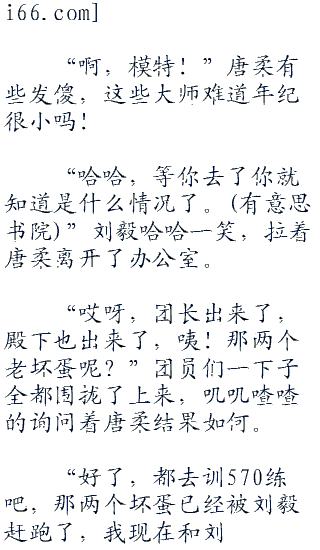 i66.com]
“啊，模特！”唐柔有
些发傻，这些大师难道年纪
很小吗！
“哈哈，等你去了你就
知道是什么情况了。(有意思
书院)”刘毅哈哈一笑，拉着
唐柔离开了办公室。
“哎呀，团长出来了，
殿下也出来了，咦！那两个
老坏蛋呢？”团员们一下子
全都围拢了上来，叽叽喳喳
的询问着唐柔结果如何。
“好了，都去训570练
吧，那两个坏蛋已经被刘毅
赶跑了，我现在和刘